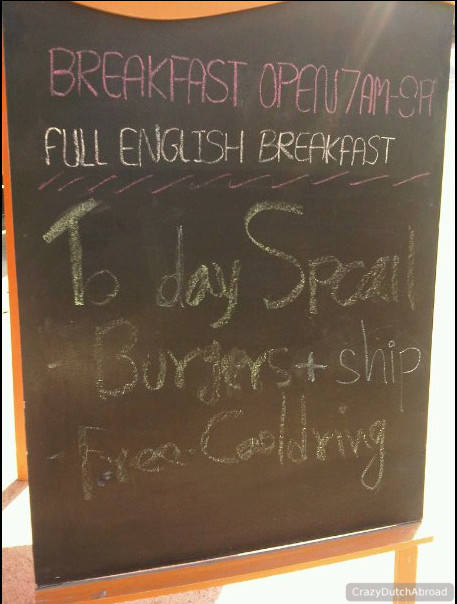 BREAKFAST OPEN 7AM-9PM
FULL ENGLISH BREAKFAST
To day Specall
- Burgers + ship
- Free. Cooldring
CrazyDutchAbroad